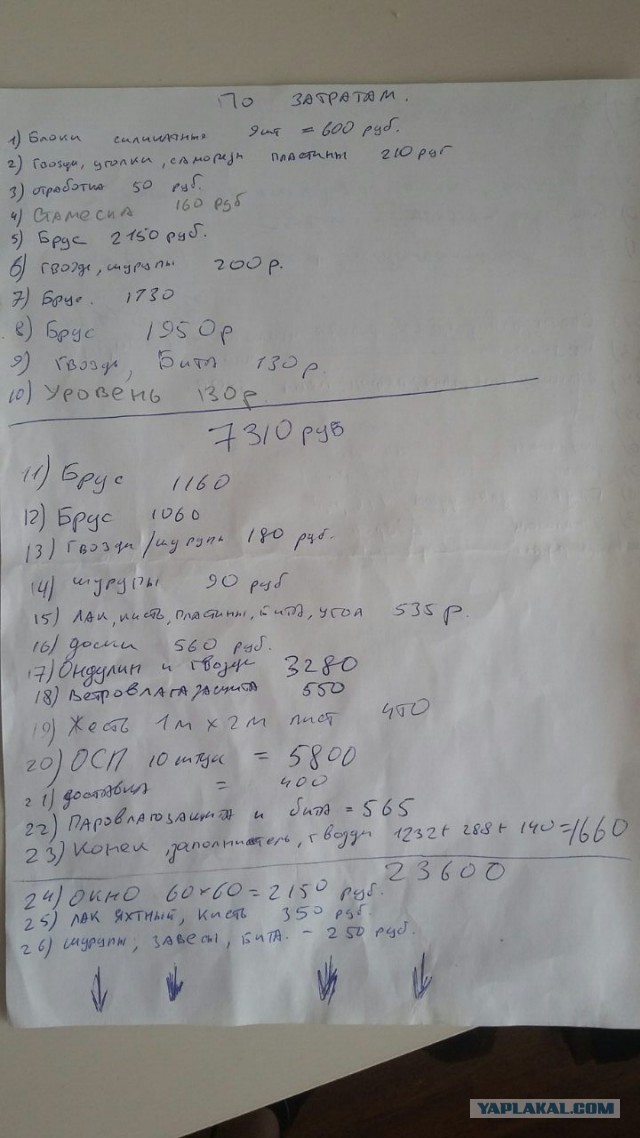 ПО ЗАТРАТАМ.
1) Блоки силикатные 9шт = 600 руб.
2) Гвозди, уголки, саморезы пластины 210 руб
3) отработка 50 руб.
4) Стамеска 160 руб
5) Брус 2150 руб.
6) гвозди, шурупы 200 р.
7) Брус. 1730
8) Брус 1950 р
9) гвозди, Бита 130 р.
10) Уровень 130 р.
7310 руб
11) Брус 1160
12) Брус 1060
13) гвозди/шурупы 180 руб.
14) шурупы 90 руб
15) лак, кисть, пластины, бита, угол 535 р.
16) доски 560 руб.
17) Ондулин и гвозди 3280
18) ветровлагазащита 550
19) Жесть 1м х 2м лист
20) ОСП 10 штук = 5800
21) доставка = 400
22) Паровлагозащита и бита = 565
23) Конек, заполнитель, гвозди 1232 + 288 + 140 = 1660
23600
24) ОКНО 60х60 = 2150 руб.
25) лак яхтный, кисть 350 руб.
26) шурупы, завесы, бита. - 250 руб.
YAPLAKAL.COM